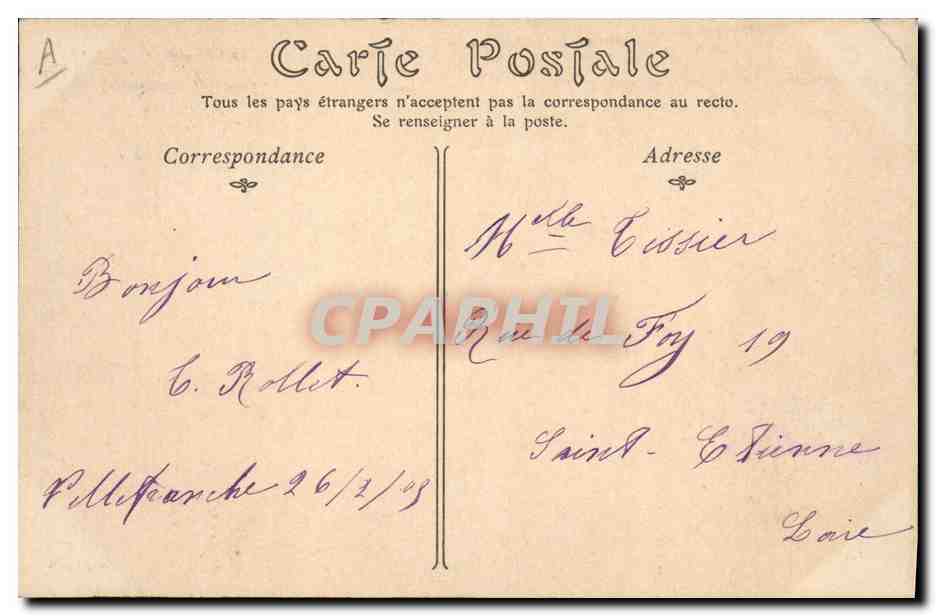 A
Carte Postale
Tous les pays étrangers n'acceptent pas la correspondance au recto.
Se renseigner à la poste.
Correspondance
Bonjour
Rollet.
Villefranche 26/2/
Adresse
Tissier
Rue de Foy 19
Saint-Etienne
Loire
CPAPHIL